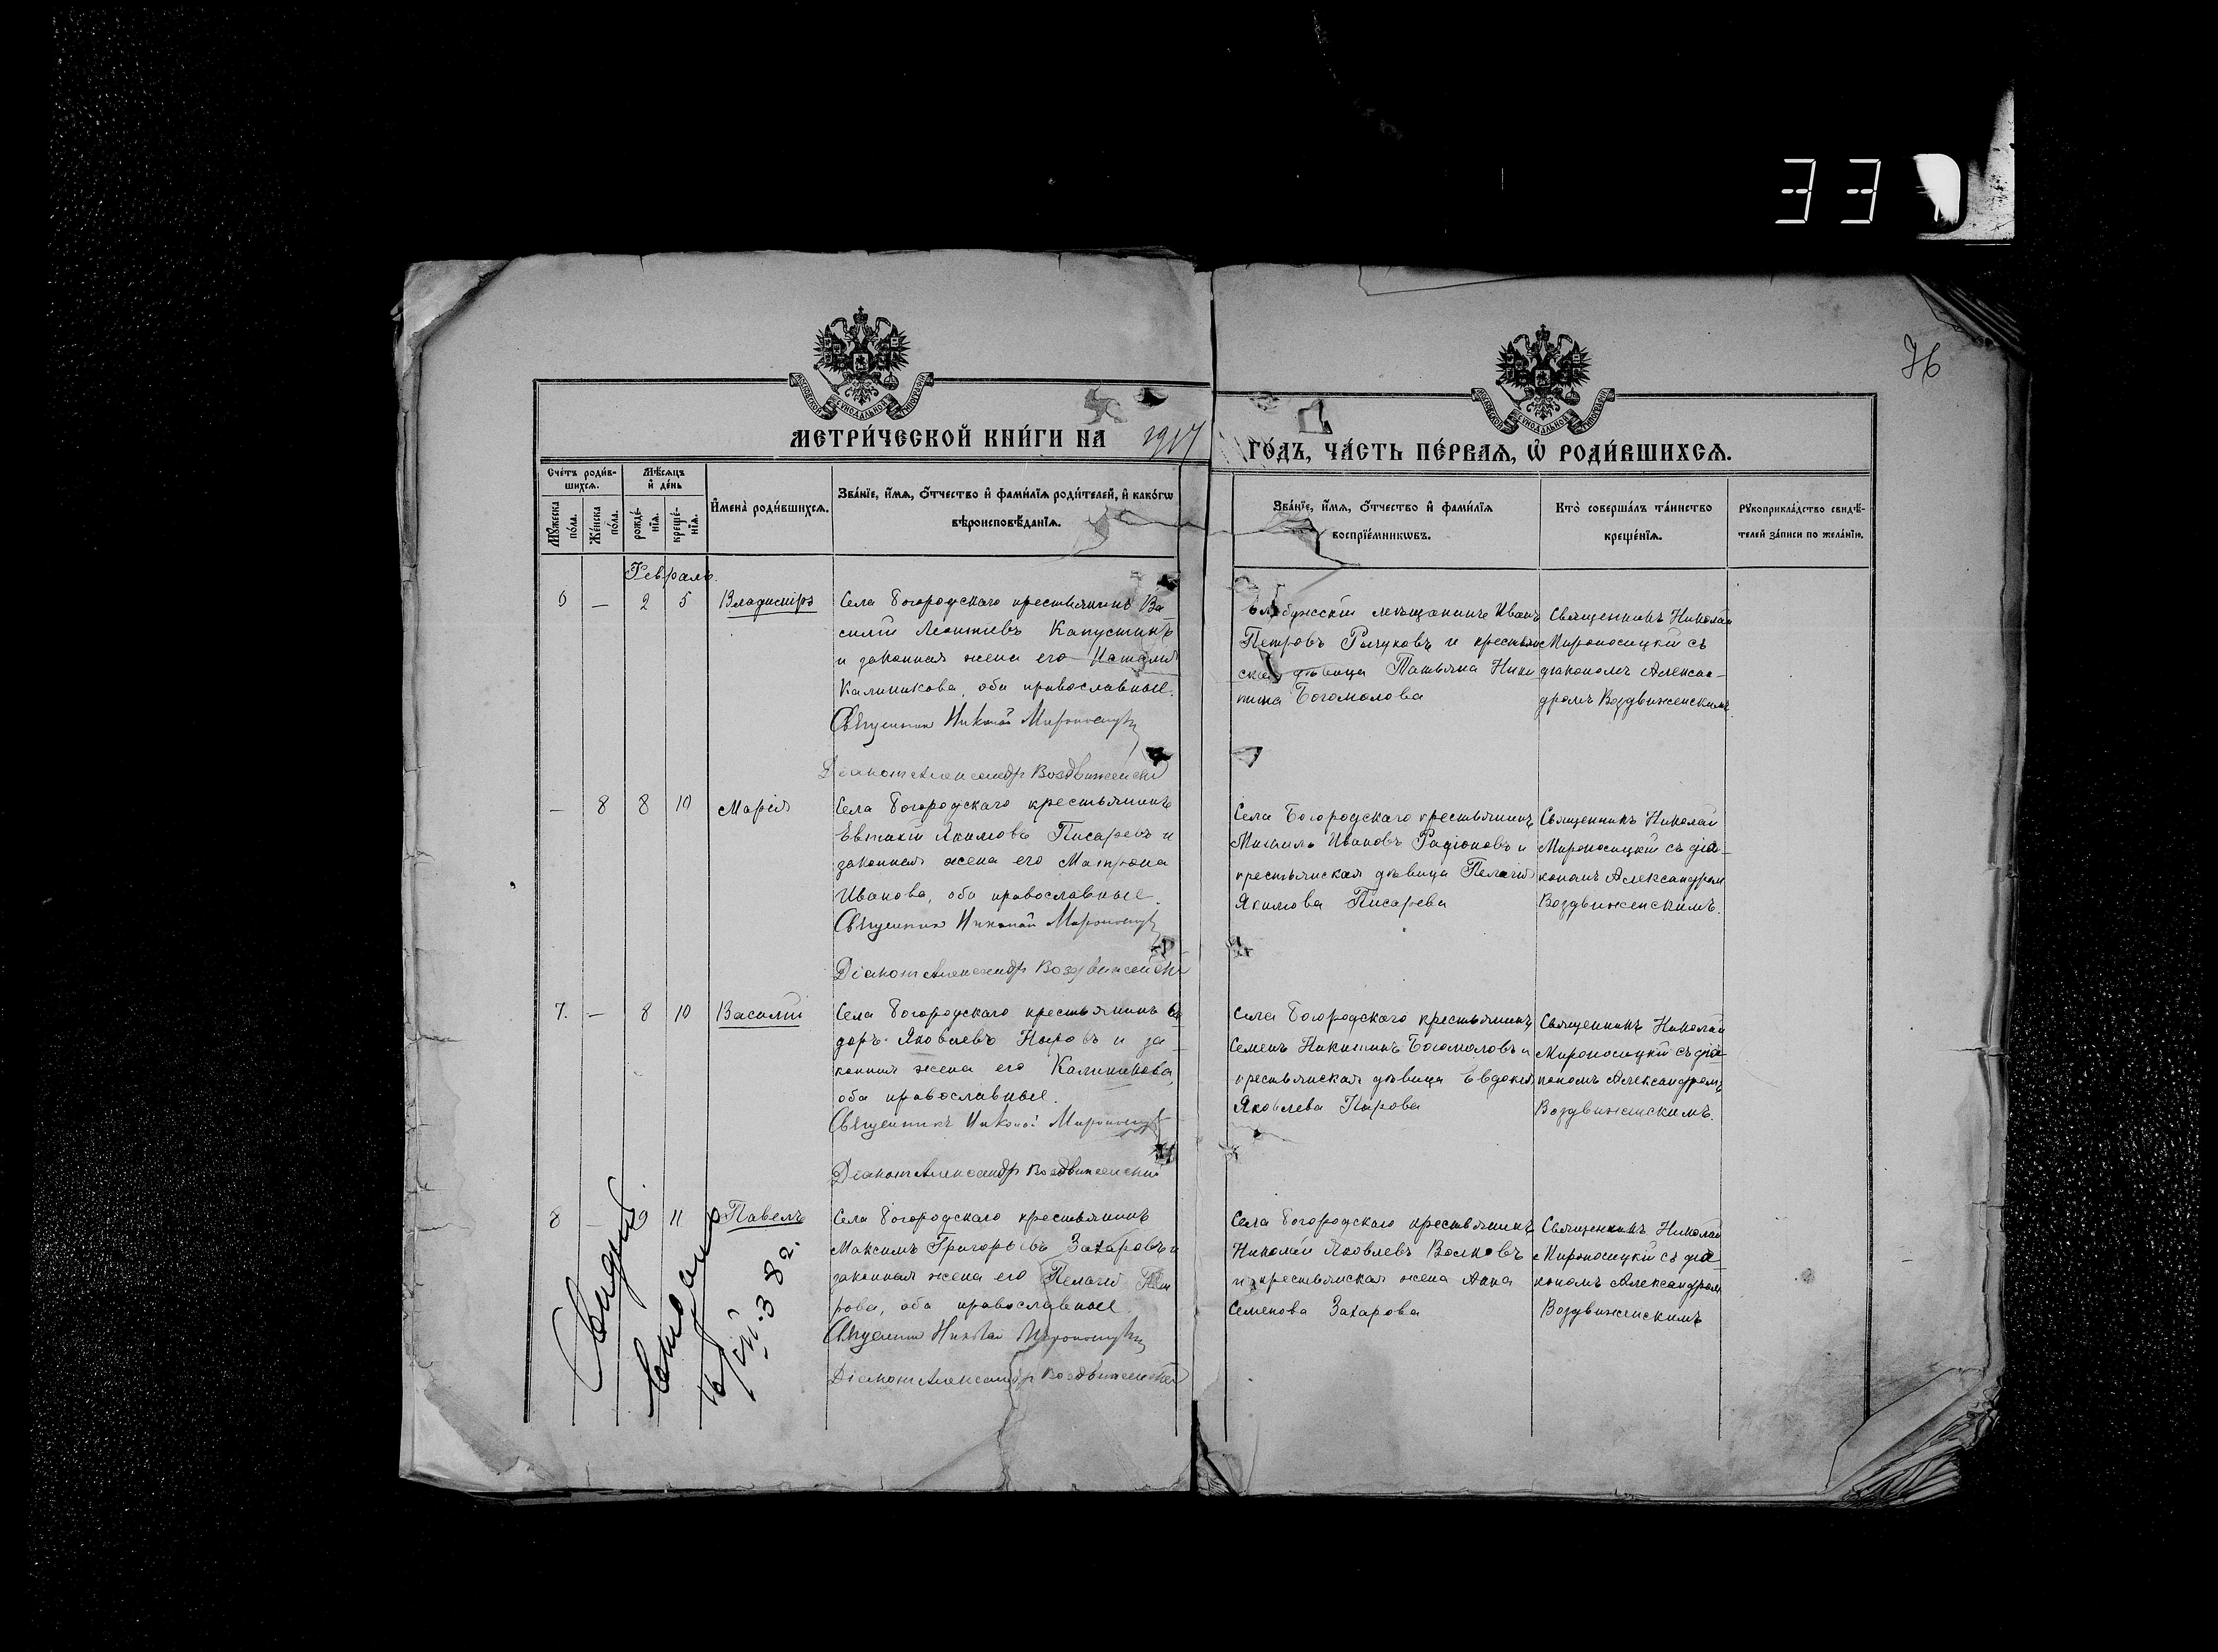 33
76
МОСКОВСКОЙ СУНОДАЛЬНОЙ ТИПОГРАФІИ
МОСКОВСКОЙ СУНОДАЛЬНОЙ ТИПОГРАФІИ
МЕТРИ́ЧЕСКОЙ КНИ́ГИ НА 1917
ГО́ДЪ, ЧА́СТЬ ПЕ́РВАѦ, Ѡ҆ РОДИ́ВШИХСѦ.
Сче́тъ роди́в-
шихсѧ.
Мѣ́сѧцъ
и҆ де́нь
Мꙋ́жеска
по́ла.
Же́нска
по́ла.
рожде́-
нїѧ.
креще́-
нїѧ.
И҆мена̀ роди́вшихсѧ.
Зва́нїе, и҆́мѧ, ѻ҆́тчество и҆ фами́лїѧ роди́телей, и҆ како́гѡ
вѣроисповѣ́данїѧ.
Зва́нїе, и҆́мѧ, ѻ҆́тчество и҆ фами́лїѧ
воспрїе́мникѡвъ.
Кто̀ соверша́лъ та́инство
креще́нїѧ.
Рꙋкоприкла́дство свидѣ́-
телей за́писи по жела́нїю.
Февраль.
6 — 2 5 Владиміръ
Села Богородскаго крестьянинъ Ва
силій Леонтіевъ Капустинъ
и законная жена его Наталія
Калиникова, оба православные.
Священникъ Николай Мироносицкій
Діаконъ Александръ Воздвиженскій
мѣщанинъ Иванъ
Петровъ и крестьян
ская дѣвица Татьяна Ники
тина Богомолова
Священникъ Николай
Мироносицкій съ
діакономъ Алексан-
дромъ Воздвиженскимъ.
— 8 8 10 Марія
Села Богородскаго крестьянинъ
Евтихій Якимовъ Писаревъ и
законная жена его Матрона
Иванова, оба православные.
Священникъ Николай Мироносицкій
Діаконъ Александръ Воздвиженскій
Села Богородскаго крестьянинъ
Михаилъ Ивановъ Радіоновъ и
крестьянская дѣвица Пелагія
Якимова Писарева
Священникъ Николай
Мироносицкій съ діа-
кономъ Александромъ
Воздвиженскимъ.
7. — 8 10 Василій
Села Богородскаго крестьянинъ Ѳе
доръ Яковлевъ Пыровъ и за-
конная жена его Калиникова,
оба православные.
Священникъ Николай Мироносицкій
Діаконъ Александръ Воздвиженскій
Села Богородскаго крестьянинъ
Семенъ Никитинъ Богомоловъ и
крестьянская дѣвица Евдокія
Яковлева Пырова
Священникъ Николай
Мироносицкій съ діа-
кономъ Александромъ
Воздвиженскимъ.
8 — 9 11 Павелъ
Села Богородскаго крестьянинъ
Максимъ Григорьевъ Захаровъ и
законная жена его Пелагія Пет
рова, оба православные.
Священникъ Николай Мироносицкій
Діаконъ Александръ Воздвиженскій
Села Богородскаго крестьянинъ
Николай Яковлевъ Волковъ
и крестьянская жена Анна
Семенова Захарова
Священникъ Николай
Мироносицкій съ діа-
кономъ Александромъ
Воздвиженскимъ
382.